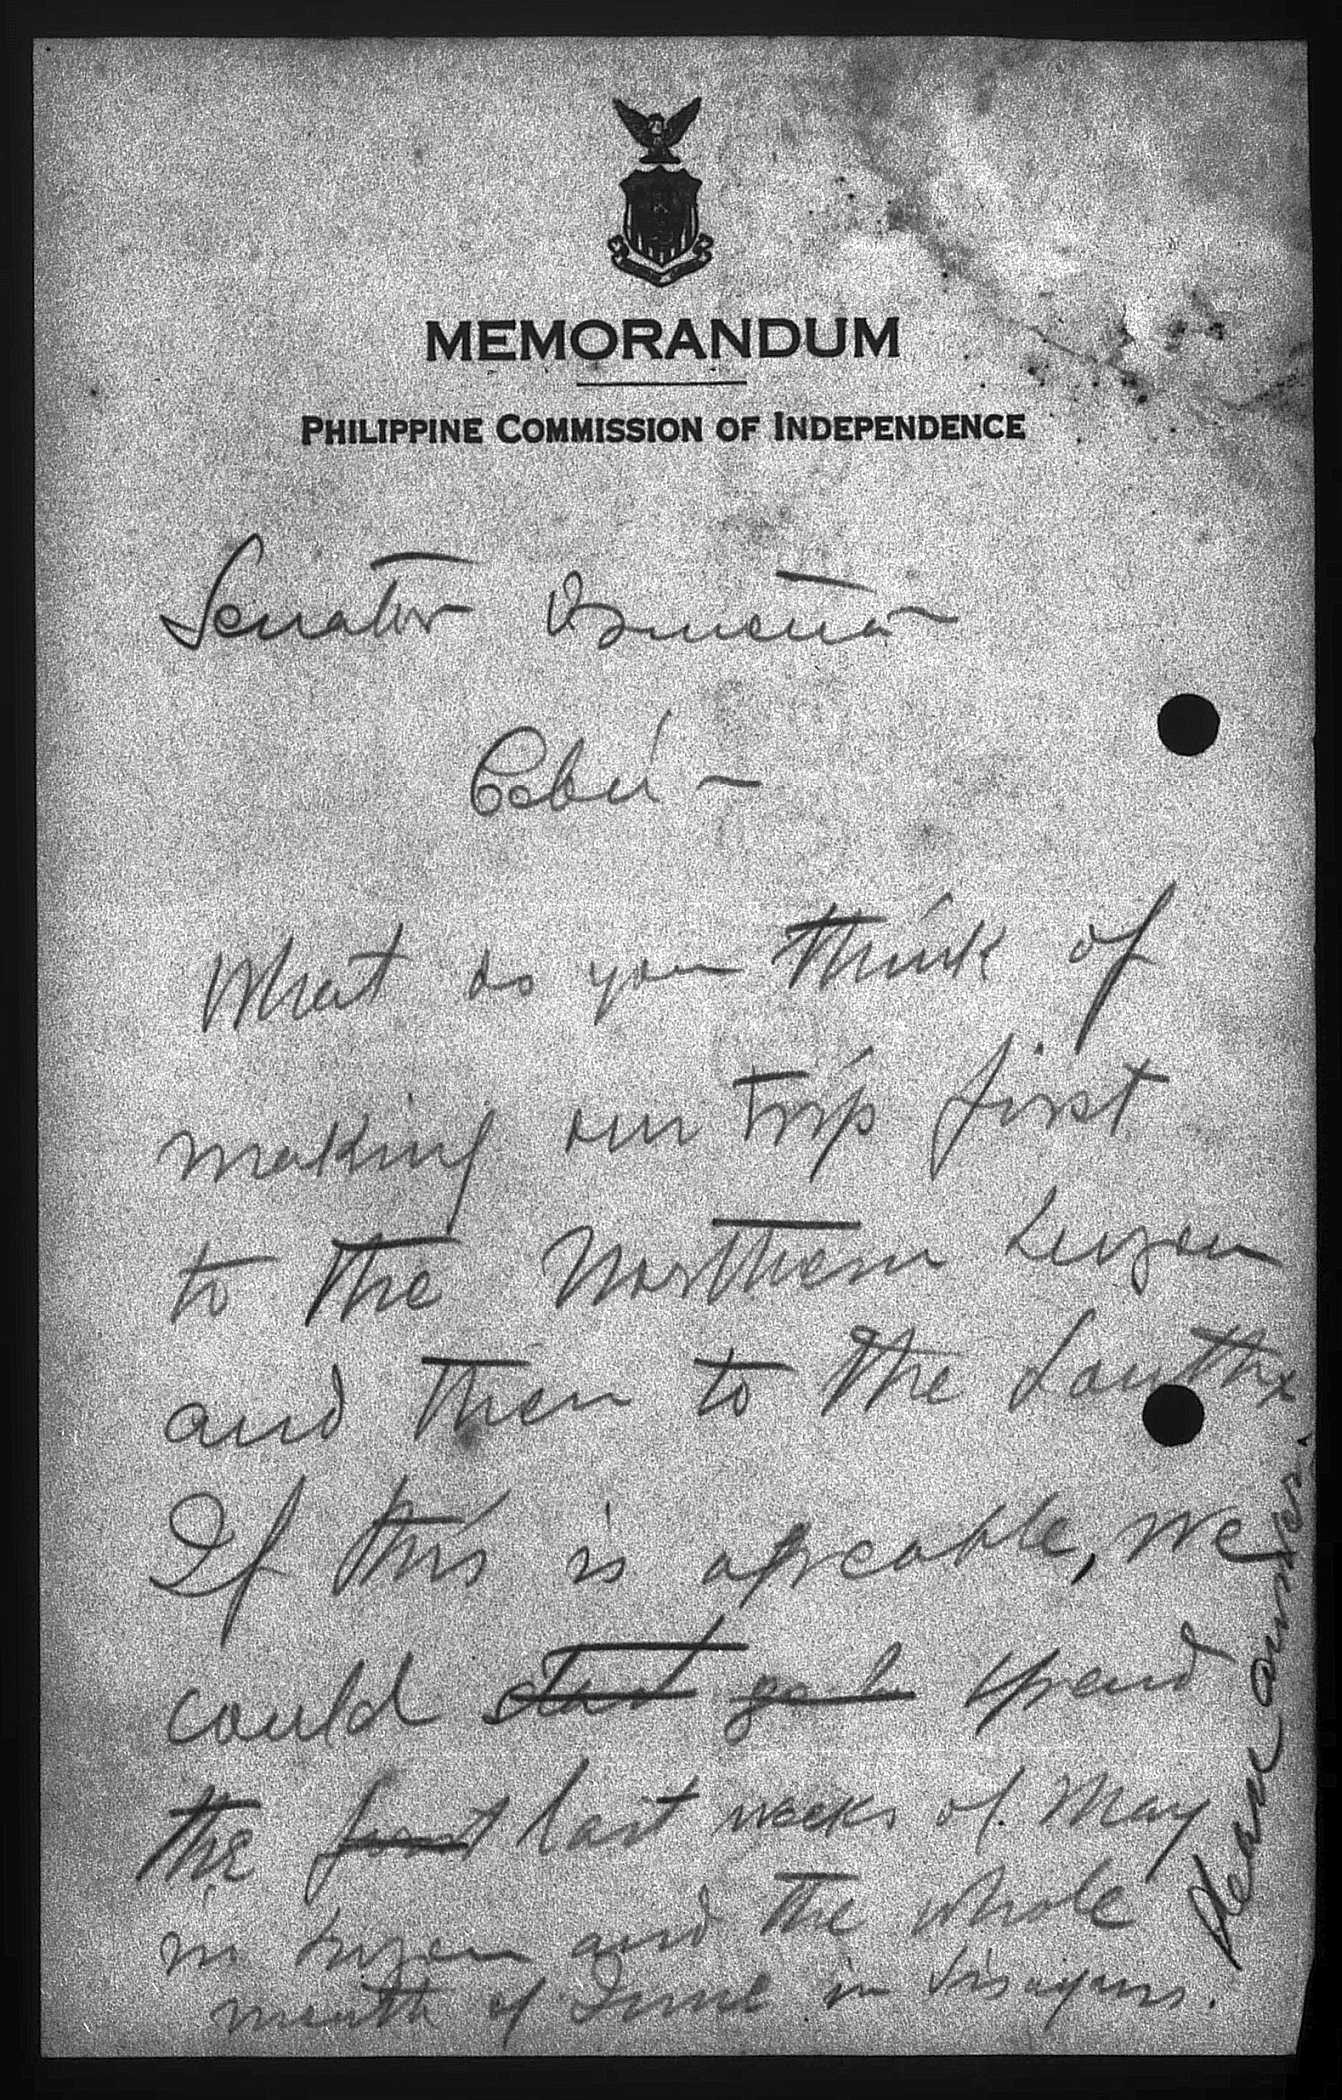 MEMORANDUM
PHILIPPINE COMMISSION OF INDEPENDENCE
Senator Osmeña
Cebú –
What do you think of
making our trip first
to the Northern Luzon
and then to the South.
If this is agreable, we
could start go to spend
the first last weeks of May
in Luzon and the whole
month of June in Visayas.
Please answer.